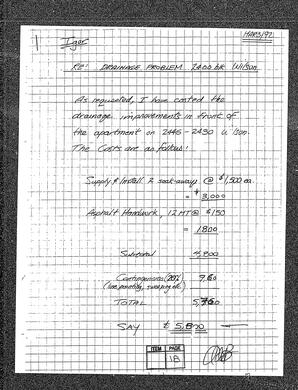 Igor
MAR 3/92
RE: DRAINAGE PROBLEM 2400 blk Wilson.
As requested, I have costed the
drainage improvements in front of
the apartment on 2446-2450 Wilson.
The Costs are as follows:
Supply & Install 2 soak-aways @ $1,500 ea.
= $3,000
Asphalt Handwork, 12 MT @ $150
= 1800
Subtotal 4,800
Contingencies (20%) 960
TOTAL 5,760
SAY $ 5,800
ITEM PAGE
1B